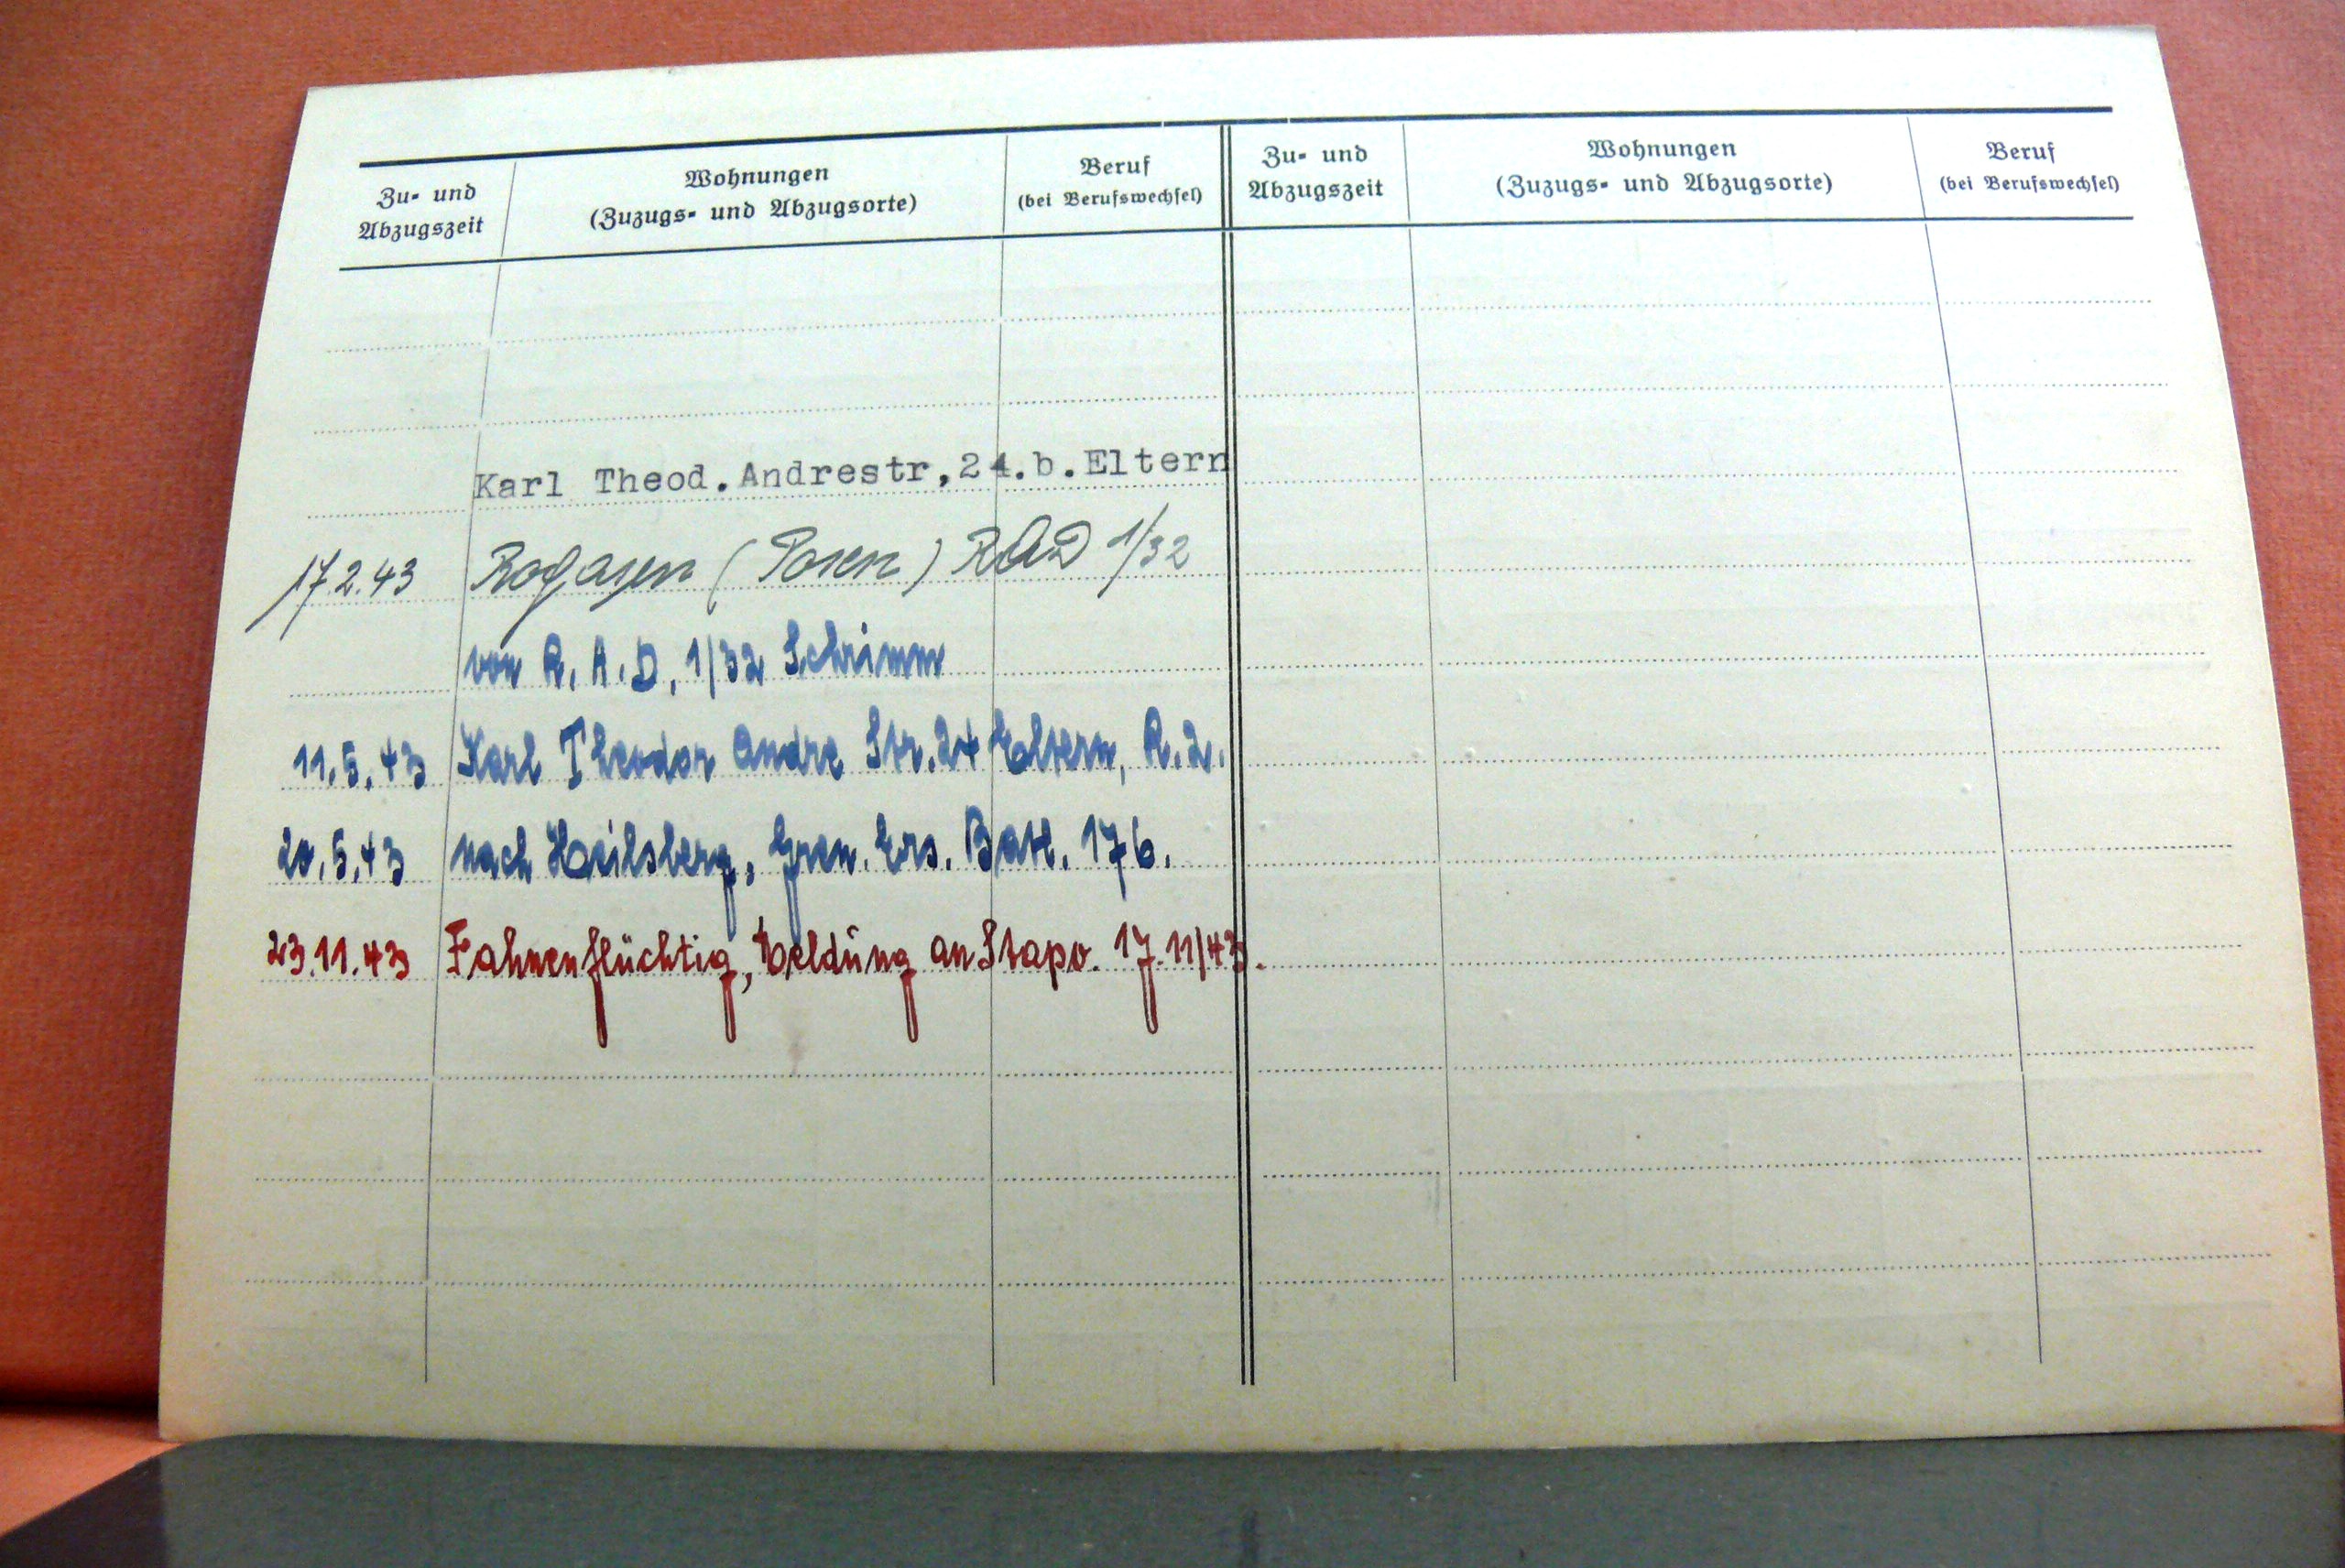 Zu- und Abzugszeit
Wohnungen
(Zuzugs- und Abzugsorte)
Beruf
(bei Berufswechsel)
Zu- und Abzugszeit
Wohnungen
(Zuzugs- und Abzugsorte)
Beruf
(bei Berufswechsel)
Karl Theod.Andrestr,24.b.Eltern
17.2.43 Rogasen (Posen) RAD 1/32
von R.A.D. 1/32 Schrimm
11.5.43 Karl Theodor Andre Str.24 Eltern, R.2.
20.5.43 nach Heilsberg, Gren. Ers. Batl. 176.
23.11.43 Fahnenflüchtig, Meldung an Stapo. 17.11/43.